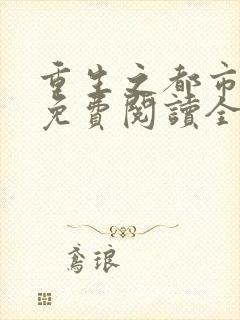 重生之都市
免費閱讀全
鳶琅